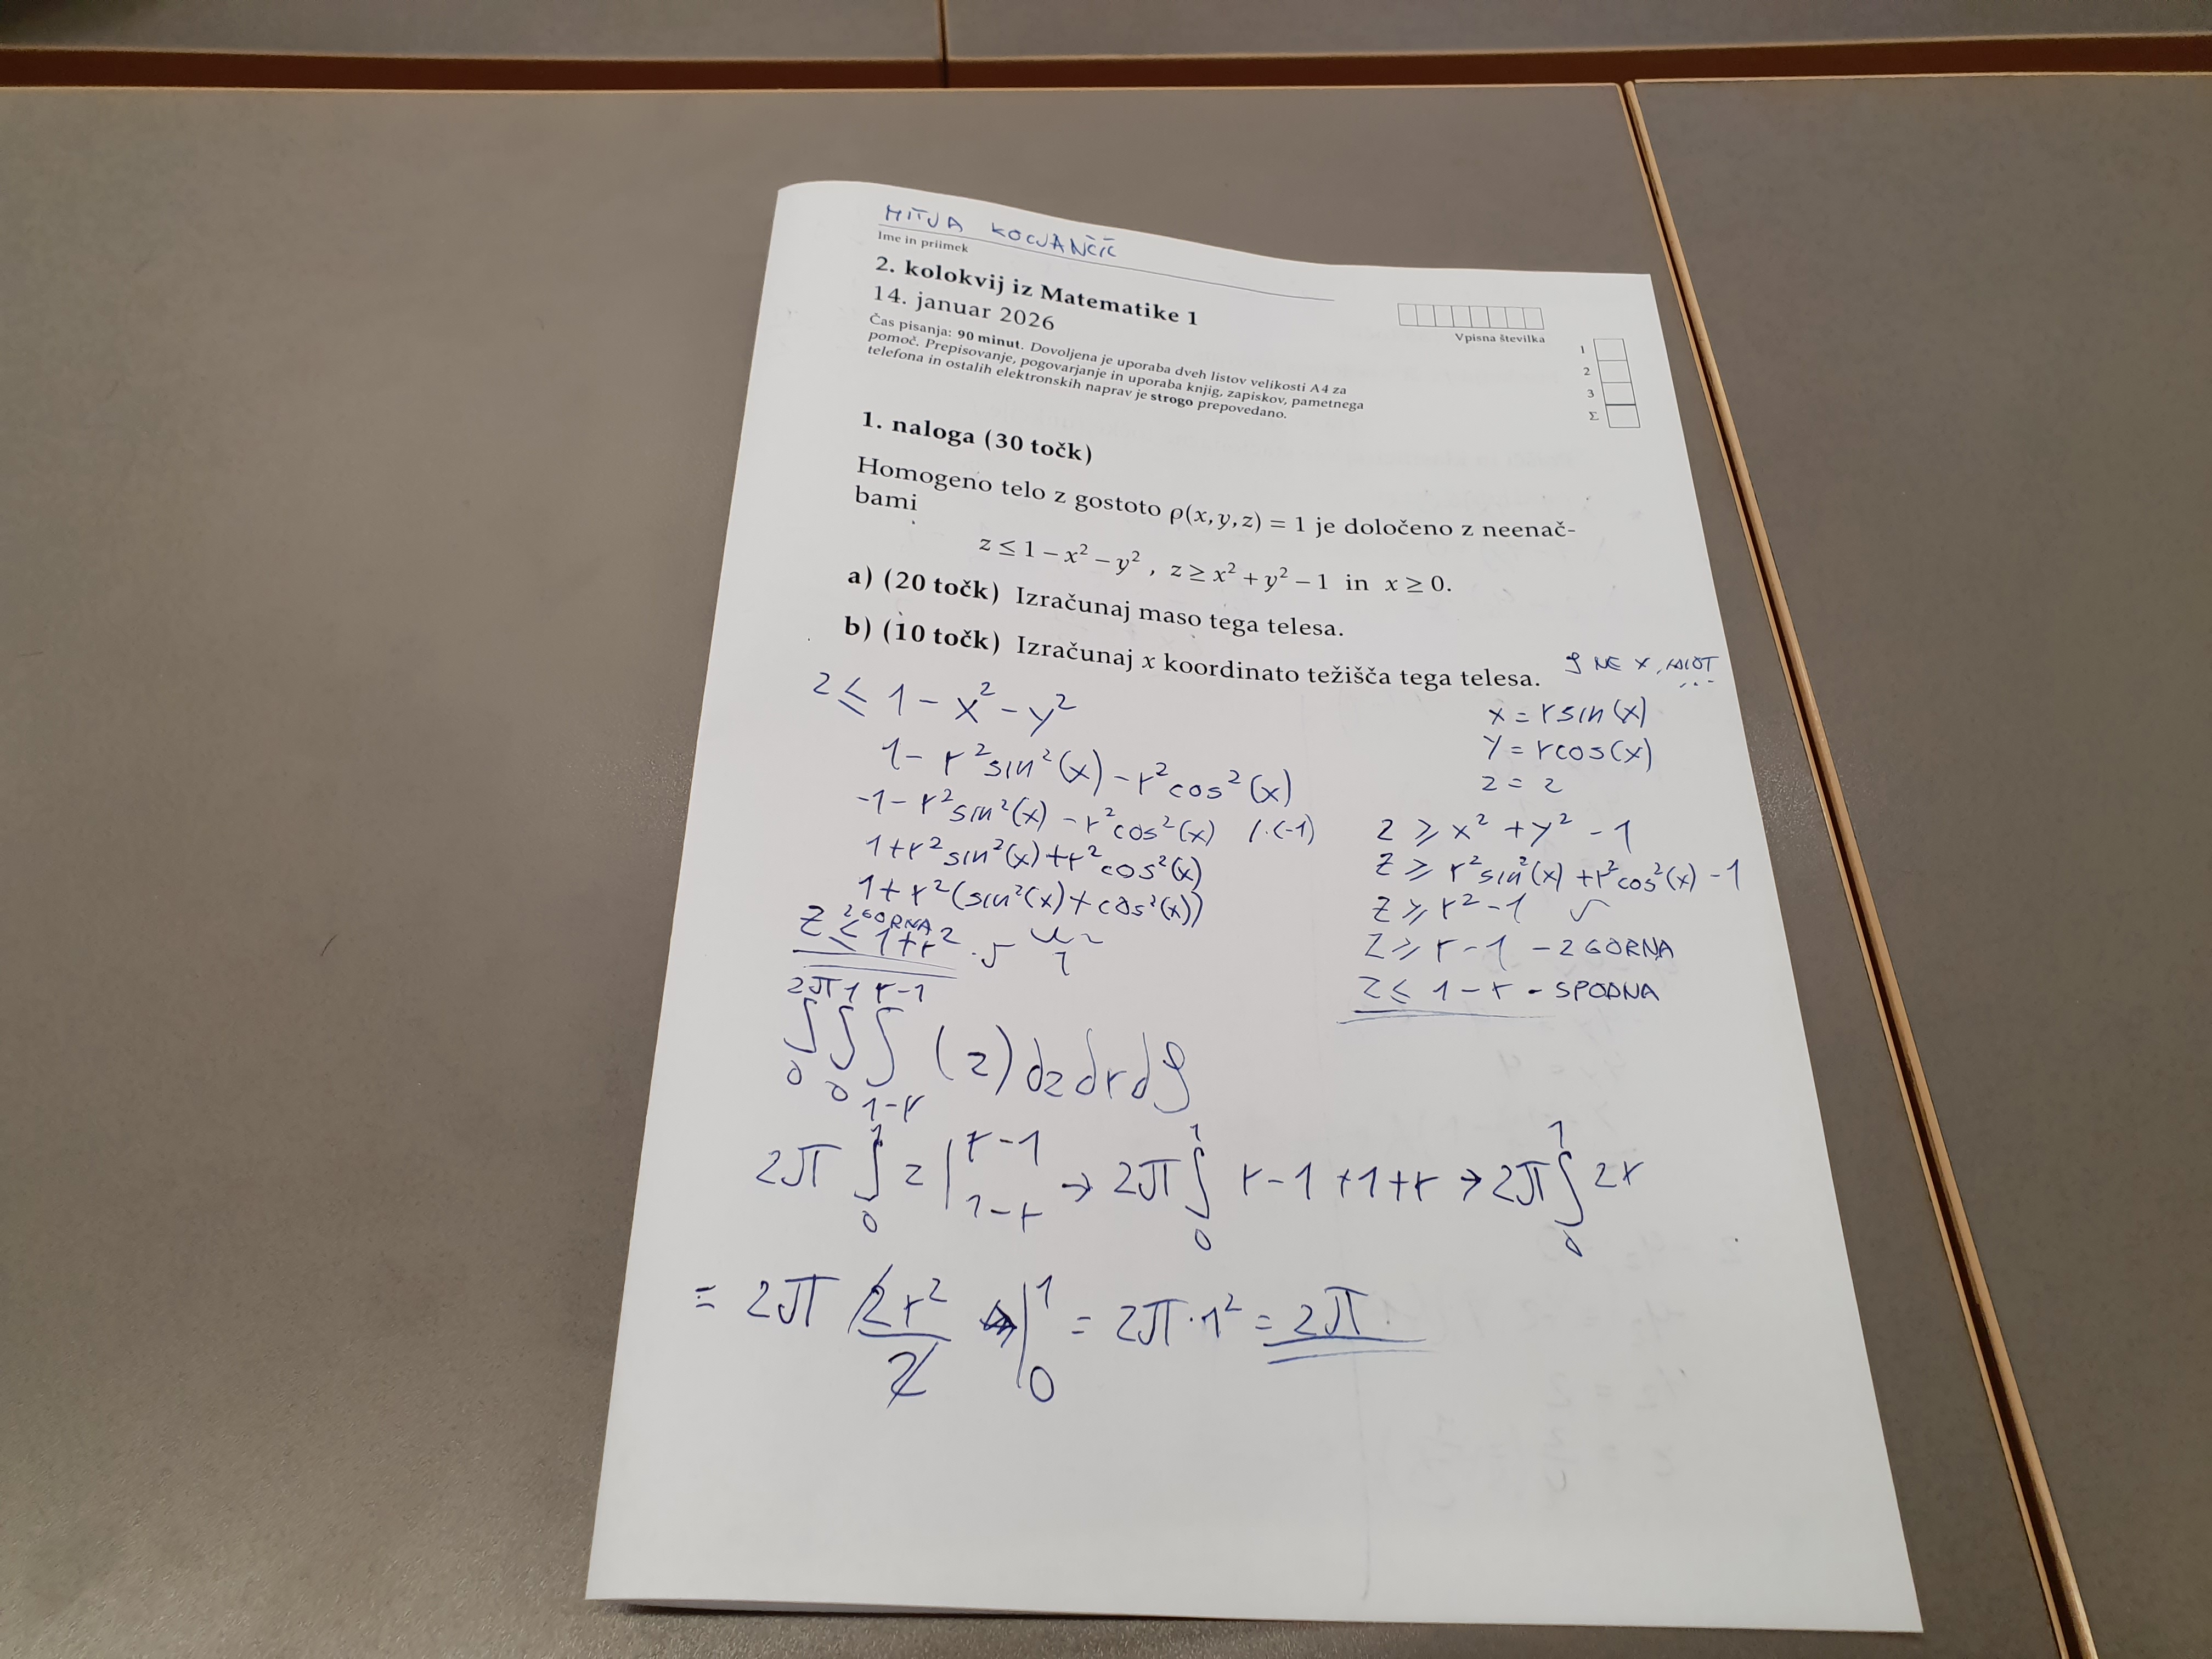 MITJA KOCJANČIČ
Ime in priimek
2. kolokvij iz Matematike 1
14. januar 2026
Čas pisanja: 90 minut. Dovoljena je uporaba dveh listov velikosti A4 za
pomoč. Prepisovanje, pogovarjanje in uporaba knjig, zapiskov, pametnega
telefona in ostalih elektronskih naprav je strogo prepovedano.
Vpisna številka
1
2
3
Σ
1. naloga (30 točk)
Homogeno telo z gostoto ρ(x,y,z) = 1 je določeno z neenač-
bami
z ≤ 1 − x² − y² , z ≥ x² + y² − 1 in x ≥ 0.
a) (20 točk) Izračunaj maso tega telesa.
b) (10 točk) Izračunaj x koordinato težišča tega telesa.
φ NE X,
z ≤ 1 − x² − y²
1 − r² sin²(x) − r² cos²(x)
-1 − r² sin²(x) − r² cos²(x) /·(-1)
1 + r² sin²(x) + r² cos²(x)
1 + r² (sin²(x) + cos²(x))
ZGORNA
z ≤ 1 + r²
1
x = r sin(x)
y = r cos(x)
z = z
z ≥ x² + y² − 1
z ≥ r² sin²(x) + r² cos²(x) − 1
z ≥ r² − 1
z ≥ r − 1 − ZGORNA
z ≤ 1 − r − SPODNA
2π 1 r−1
∫ ∫ ∫ (z) dz dr dφ
0 0 1−r
2π ∫₀¹ z |_{1−r}^{r−1} → 2π ∫₀¹ r − 1 + 1 + r → 2π ∫₀¹ 2r
= 2π 2r²/2 |₀¹ = 2π · 1² = 2π